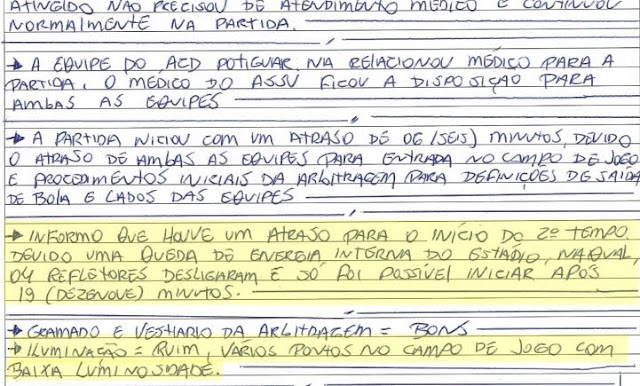 ATINGIDO NÃO PRECISOU DE ATENDIMENTO MÉDICO E CONTINUOU
NORMALMENTE NA PARTIDA.
→ A EQUIPE DO ACD POTIGUAR NÃ RELACIONOU MÉDICO PARA A
PARTIDA. O MÉDICO DO ASSU FICOU A DISPOSIÇÃO PARA
AMBAS AS EQUIPES
→ A PARTIDA INICIOU COM UM ATRASO DE 06 (SEIS) MINUTOS, DEVIDO
O ATRASO DE AMBAS AS EQUIPES PARA ENTRADA NO CAMPO DE JOGO
E PROCEDIMENTOS INICIAIS DA ARBITRAGEM PARA DEFINIÇÕES DE SAIDA
DE BOLA E LADOS DAS EQUIPES
→ INFORMO QUE HOUVE UM ATRASO PARA O INÍCIO DO 2º TEMPO
DEVIDO UMA QUEDA DE ENERGIA INTERNA DO ESTÁDIO, NA QUAL,
04 REFLETORES DESLIGARAM E SÓ FOI POSSÍVEL INICIAR APÓS
19 (DEZENOVE) MINUTOS.
→ GRAMADO E VESTIARIO DA ARBITRAGEM = BONS
→ ILUMINAÇÃO = RUIM, VÁRIOS PONTOS NO CAMPO DE JOGO COM
BAIXA LUMINOSIDADE.